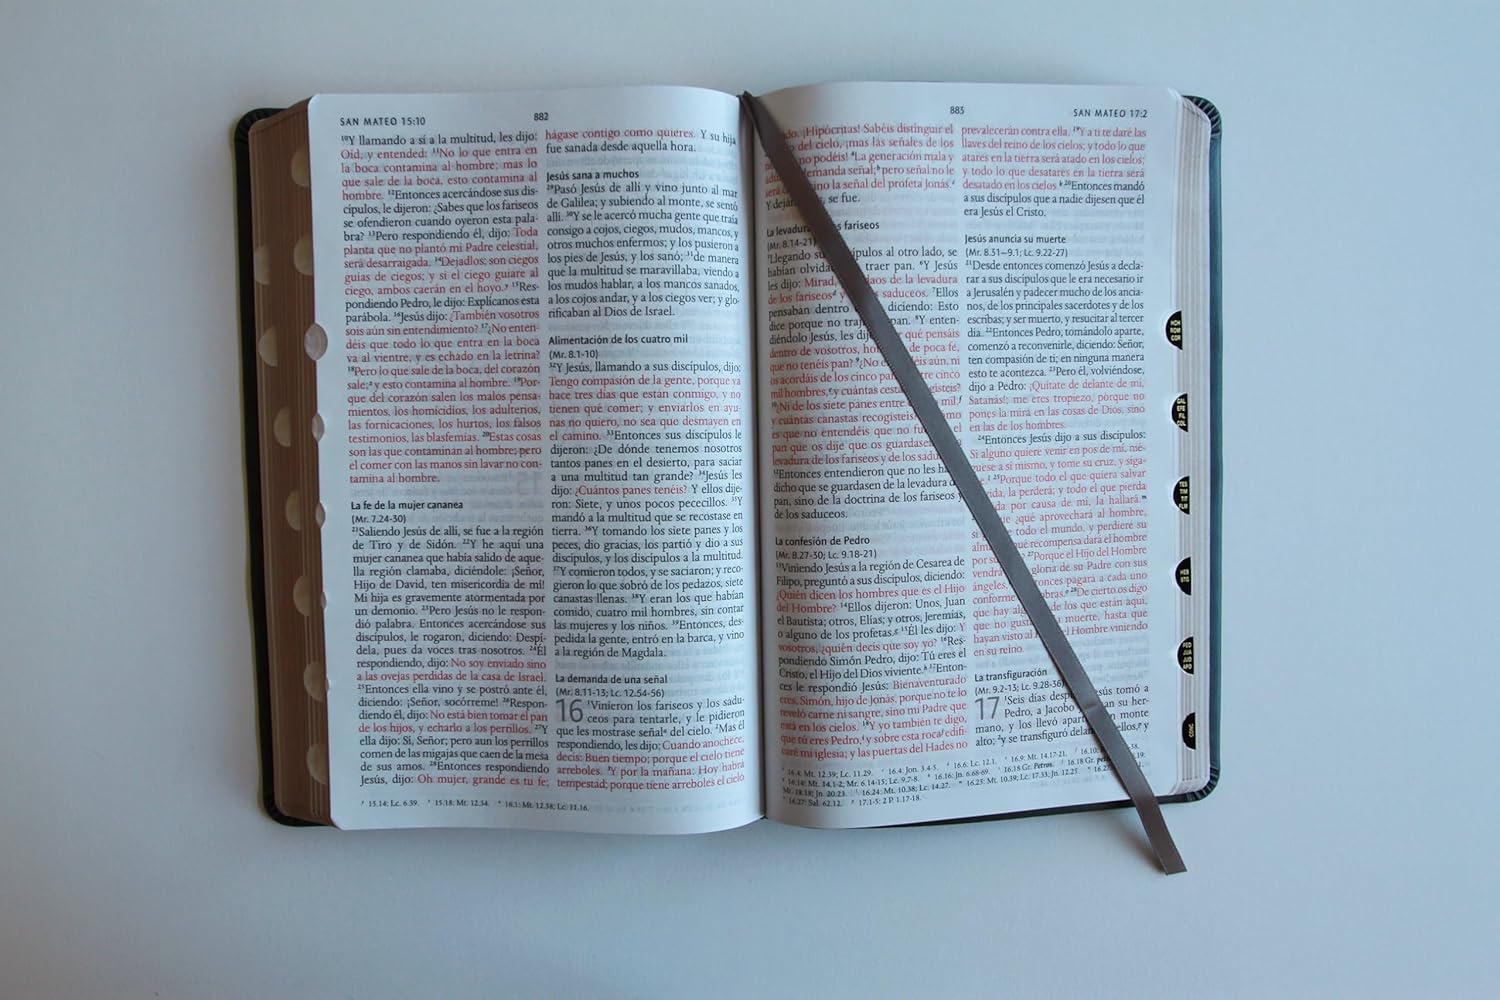 SAN MATEO 15:10
882
¹⁰Y llamando a sí a la multitud, les dijo:
Oíd, y entended: ¹¹No lo que entra en
la boca contamina al hombre; mas lo
que sale de la boca, esto contamina al
hombre. ¹²Entonces acercándose sus dis-
cípulos, le dijeron: ¿Sabes que los fariseos
se ofendieron cuando oyeron esta pala-
bra? ¹³Pero respondiendo él, dijo: Toda
planta que no plantó mi Padre celestial,
será desarraigada. ¹⁴Dejadlos; son ciegos
guías de ciegos; y si el ciego guiare al
ciego, ambos caerán en el hoyo. ¹⁵Res-
pondiendo Pedro, le dijo: Explícanos esta
parábola. ¹⁶Jesús dijo: ¿También vosotros
sois aún sin entendimiento? ¹⁷¿No enten-
déis que todo lo que entra en la boca
va al vientre, y es echado en la letrina?
¹⁸Pero lo que sale de la boca, del corazón
sale; y esto contamina al hombre. ¹⁹Por-
que del corazón salen los malos pensa-
mientos, los homicidios, los adulterios,
las fornicaciones, los hurtos, los falsos
testimonios, las blasfemias. ²⁰Estas cosas
son las que contaminan al hombre; pero
el comer con las manos sin lavar no con-
tamina al hombre.
La fe de la mujer cananea
(Mr. 7.24-30)
²¹Saliendo Jesús de allí, se fue a la región
de Tiro y de Sidón. ²²Y he aquí una
mujer cananea que había salido de aque-
lla región clamaba, diciéndole: ¡Señor,
Hijo de David, ten misericordia de mí!
Mi hija es gravemente atormentada por
un demonio. ²³Pero Jesús no le respon-
dió palabra. Entonces acercándose sus
discípulos, le rogaron, diciendo: Despí-
dela, pues da voces tras nosotros. ²⁴Él
respondiendo, dijo: No soy enviado sino
a las ovejas perdidas de la casa de Israel.
²⁵Entonces ella vino y se postró ante él,
diciendo: ¡Señor, socórreme! ²⁶Respon-
diendo él, dijo: No está bien tomar el pan
de los hijos, y echarlo a los perrillos. ²⁷Y
ella dijo: Sí, Señor; pero aun los perrillos
comen de las migajas que caen de la mesa
de sus amos. ²⁸Entonces respondiendo
Jesús, dijo: Oh mujer, grande es tu fe;
hágase contigo como quieres. Y su hija
fue sanada desde aquella hora.
Jesús sana a muchos
²⁹Pasó Jesús de allí y vino junto al mar
de Galilea; y subiendo al monte, se sentó
allí. ³⁰Y se le acercó mucha gente que traía
consigo a cojos, ciegos, mudos, mancos, y
otros muchos enfermos; y los pusieron a
los pies de Jesús, y los sanó; ³¹de manera
que la multitud se maravillaba, viendo a
los mudos hablar, a los mancos sanados,
a los cojos andar, y a los ciegos ver; y glo-
rificaban al Dios de Israel.
Alimentación de los cuatro mil
(Mr. 8.1-10)
³²Y Jesús, llamando a sus discípulos, dijo:
Tengo compasión de la gente, porque ya
hace tres días que están conmigo, y no
tienen qué comer; y enviarlos en ayu-
nas no quiero, no sea que desmayen en
el camino. ³³Entonces sus discípulos le
dijeron: ¿De dónde tenemos nosotros
tantos panes en el desierto, para saciar
a una multitud tan grande? ³⁴Jesús les
dijo: ¿Cuántos panes tenéis? Y ellos dije-
ron: Siete, y unos pocos pececillos. ³⁵Y
mandó a la multitud que se recostase en
tierra. ³⁶Y tomando los siete panes y los
peces, dio gracias, los partió y dio a sus
discípulos, y los discípulos a la multitud.
³⁷Y comieron todos, y se saciaron; y reco-
gieron lo que sobró de los pedazos, siete
canastas llenas. ³⁸Y eran los que habían
comido, cuatro mil hombres, sin contar
las mujeres y los niños. ³⁹Entonces, des-
pedida la gente, entró en la barca, y vino
a la región de Magdala.
La demanda de una señal
(Mr. 8.11-13; Lc. 12.54-56)
16 ¹Vinieron los fariseos y los sadu-
ceos para tentarle, y le pidieron
que les mostrase señal del cielo. ²Mas él
respondiendo, les dijo: Cuando anochece,
decís: Buen tiempo; porque el cielo tiene
arreboles. ³Y por la mañana: Hoy habrá
tempestad; porque tiene arreboles el cielo
15.14: Lc. 6.39. 15:18: Mt. 12.34. 16:1: Mt. 12.38; Lc. 11.16.
883
SAN MATEO 17:2
¡Hipócritas! Sabéis distinguir el
del cielo, ¡mas las señales de los
no podéis! ⁴La generación mala y
demanda señal; pero señal no le
será sino la señal del profeta Jonás.
Y deján se fue.
La levadura fariseos
(Mr. 8.14-21)
⁵Llegando discípulos al otro lado, se
habían olvidado traer pan. ⁶Y Jesús
les dijo: Mirad, de la levadura
de los fariseos y saduceos. ⁷Ellos
pensaban dentro diciendo: Esto
dice porque no pan. ⁸Y enten-
diéndolo Jesús, les dijo: qué pensáis
dentro de vosotros, de poca fe,
que no tenéis pan? ⁹¿No aún, ni
os acordáis de los cinco panes cinco
mil hombres, y cuántas
¹⁰¿Ni de los siete panes entre mil,
y cuántas canastas recogisteis?
es que no entendéis que no fue el
pan que os dije que os guardaseis
levadura de los fariseos y de los
¹²Entonces entendieron que no les
dicho que se guardasen de la levadura
pan, sino de la doctrina de los fariseos y
de los saduceos.
La confesión de Pedro
(Mr. 8.27-30; Lc. 9.18-21)
¹³Viniendo Jesús a la región de Cesarea de
Filipo, preguntó a sus discípulos, diciendo:
¿Quién dicen los hombres que es el Hijo
del Hombre? ¹⁴Ellos dijeron: Unos, Juan
el Bautista; otros, Elías; y otros, Jeremías,
o alguno de los profetas. ¹⁵Él les dijo: Y
vosotros, ¿quién decís que soy yo? ¹⁶Res-
pondiendo Simón Pedro, dijo: Tú eres el
Cristo, el Hijo del Dios viviente. ¹⁷Enton-
ces le respondió Jesús: Bienaventurado
eres, Simón, hijo de Jonás, porque no te lo
reveló carne ni sangre, sino mi Padre que
está en los cielos. ¹⁸Y yo también te digo,
que tú eres Pedro, y sobre esta roca edifi-
caré mi iglesia; y las puertas del Hades no
prevalecerán contra ella. ¹⁹Y a ti te daré las
llaves del reino de los cielos; y todo lo que
atares en la tierra será atado en los cielos;
y todo lo que desatares en la tierra será
desatado en los cielos. ²⁰Entonces mandó
a sus discípulos que a nadie dijesen que él
era Jesús el Cristo.
Jesús anuncia su muerte
(Mr. 8.31—9.1; Lc. 9.22-27)
²¹Desde entonces comenzó Jesús a decla-
rar a sus discípulos que le era necesario ir
a Jerusalén y padecer mucho de los ancia-
nos, de los principales sacerdotes y de los
escribas; y ser muerto, y resucitar al tercer
día. ²²Entonces Pedro, tomándolo aparte,
comenzó a reconvenirle, diciendo: Señor,
ten compasión de ti; en ninguna manera
esto te acontezca. ²³Pero él, volviéndose,
dijo a Pedro: ¡Quítate de delante de mí,
Satanás!; me eres tropiezo, porque no
pones la mira en las cosas de Dios, sino
en las de los hombres.
²⁴Entonces Jesús dijo a sus discípulos:
Si alguno quiere venir en pos de mí, nié-
guese a sí mismo, y tome su cruz, y síga-
²⁵Porque todo el que quiera salvar
vida, la perderá; y todo el que pierda
vida por causa de mí, la hallará.
¿qué aprovechará al hombre,
si todo el mundo, y perdiere su
alma? qué recompensa dará el hombre
²⁷Porque el Hijo del Hombre
vendrá gloria de su Padre con sus
ángeles, entonces pagará a cada uno
conforme obras. ²⁸De cierto os digo
que hay de los que están aquí,
que no muerte, hasta que
hayan visto al Hijo del Hombre viniendo
en su reino.
La transfiguración
(Mr. 9.2-13; Lc. 9.28-36)
17 ¹Seis días Jesús tomó a
Pedro, a Jacobo an su her-
mano, y los llevó aparte monte
alto; ²y se transfiguró delante ellos, y
16.4: Mt. 12.39; Lc. 11.29. 16.4: Jon. 3.4-5. 16.6: Lc. 12.1. 16.9: Mt. 14.17-21.
16:14: Mt. 14.1-2; Mr. 6.14-15; Lc. 9.7-8. 16.16: Jn. 6.68-69. 16.18 Gr. Petros. 16.18 Gr.
Mt. 18.18; Jn. 20.23. 16.24: Mt. 10.38; Lc. 14.27. 16.25: Mt. 10.39; Lc. 17.33; Jn. 12.25.
16.27: Sal. 62.12. 17.1-5: 2 P. 1.17-18.
HCH
ROM
COR
GAL
EFE
FIL
COL
TES
TIM
TIT
FLM
HEB
STG
PED
JUA
JUD
APO
CONC